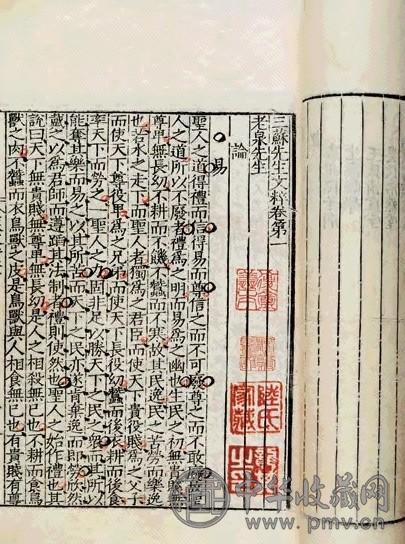 三蘇先生文粹卷第一
老泉先生
論
易
聖人之道得禮而信得易而尊信之而不可廢尊之而不敢廢故聖
人之道所以不廢者禮爲之明而易爲之幽也生民之初無貴賤無
尊卑無長幼不耕而不饑不蠶而不寒故其民逸民之苦勞而樂逸
也若水之走下而聖人者獨爲之君臣而使天下貴役賤爲之父子
而使天下尊役卑爲之兄弟而使天下長役幼蠶而後衣耕而後食
率天下而勞之一聖人之力固非足以勝天下之民之衆而其所以
能奪其樂而易之以其所苦而天下之民亦遂肯棄逸而即勞欣然
戴之以爲君師而遵蹈其法制者禮則使然也聖人之始作禮也其
說曰天下無貴賤無尊卑無長幼是人之相殺無已也不耕而食鳥
獸之肉不蠶而衣鳥獸之皮是鳥獸與人相食無已也有貴賤有尊
陸氏家藏
中华收藏网
www.pmv.cn